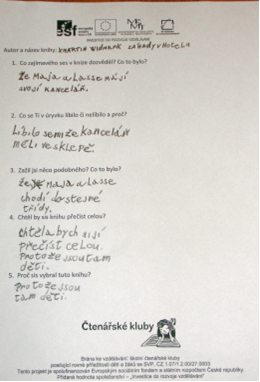 esf
INVESTICE DO ROZVOJE VZDĚLÁVÁNÍ
Autor a název knihy: Martin Widmark Záhady v hotelu
1. Co zajímavého ses v knize dozvěděl? Co to bylo?
Že Maja a Lasse mají
svojí kancelář.
2. Co se Ti v úryvku líbilo či nelíbilo a proč?
Líbilo se mi že kancelář
měli ve sklepě.
3. Zažil jsi něco podobného? Co to bylo?
Maja a Lasse
chodí do stejné
třídy.
4. Chtěl by sis knihu přečíst celou?
chtěla bych jí
přečíst celou.
Protože jsou tam
děti.
5. Proč sis vybral tuto knihu?
Protože jsou
tam děti.
Čtenářské kluby
Brána ke vzdělávání: školní čtenářské kluby
posilující méně příležitostí dětí a žáků se SVP, CZ.1.07/1.2.00/27.0003
Tento projekt je spolufinancován Evropským sociálním fondem a státním rozpočtem České republiky.